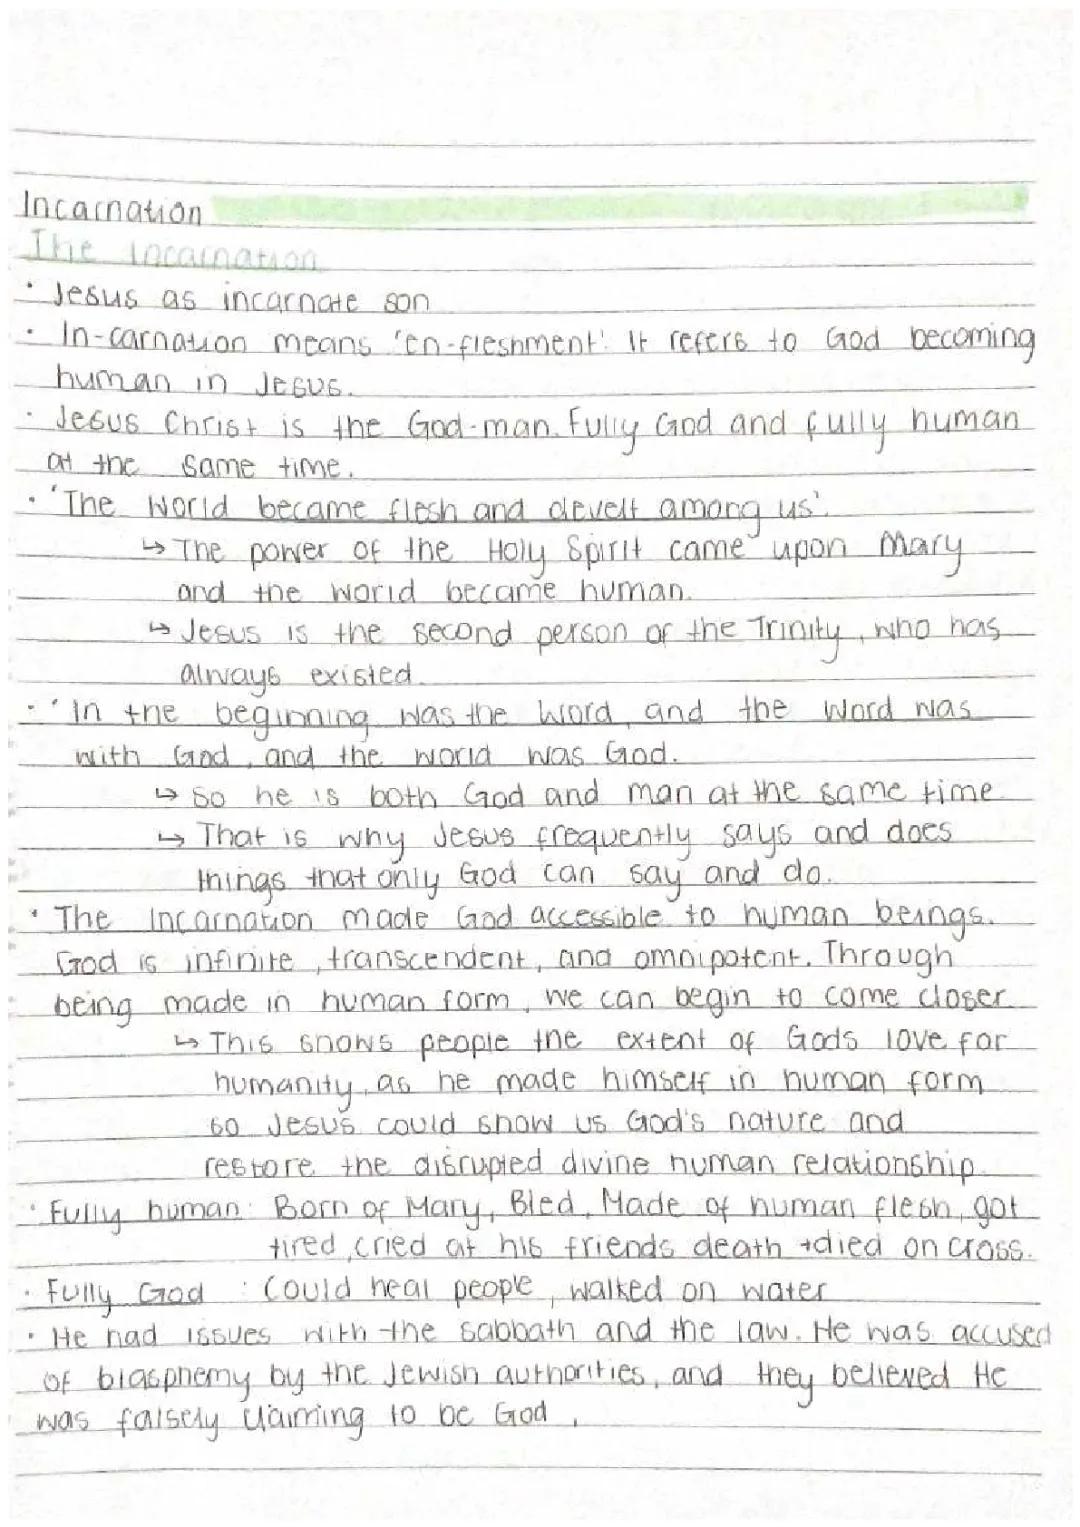 Incarnation
The incarnation
· Jesus as incarnate son
· In-carnation means 'en-fleshment'. It refers to God becoming
human in Jesus.
· Jesus Christ is the God-man. Fully God and fully human
at the same time.
· 'The World became flesh and develt among us'.
↳ The power of the Holy Spirit came upon Mary
and the world became human.
↳ Jesus is the second person of the Trinity, who has
always existed.
· 'In the beginning was the Word, and the Word was
with God, and the world was God.
↳ So he is both God and man at the same time
↳ That is why Jesus frequently says and does
things that only God can say and do.
· The Incarnation made God accessible to human beings.
God is infinite, transcendent, and omnipotent. Through
being made in human form, we can begin to come closer
↳ This shows people the extent of Gods love for
humanity, as he made himself in human form
so Jesus could show us God's nature and
restore the disrupted divine human relationship.
· Fully human: Born of Mary, Bled, Made of human flesh, got
tired, cried at his friends death + died on cross.
· Fully God : Could heal people, walked on water
· He had issues with the sabbath and the law. He was accused
of blasphemy by the Jewish authorities, and they believed He
was falsely claiming to be God.